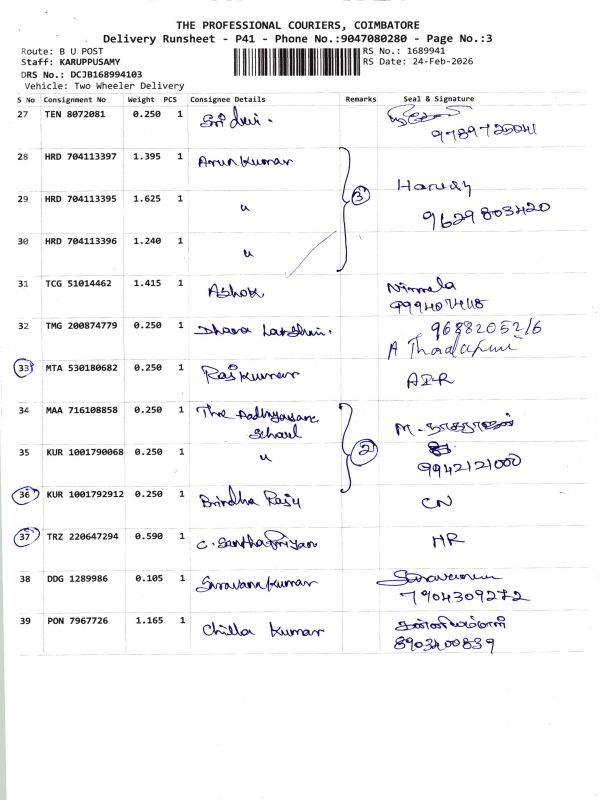 THE PROFESSIONAL COURIERS, COIMBATORE
Delivery Runsheet - P41 - Phone No.:9047080280 - Page No.:3
Route: B U POST
RS No.: 1689941
Staff: KARUPPUSAMY
RS Date: 24-Feb-2026
DRS No.: DCJB168994103
Vehicle: Two Wheeler Delivery
S No Consignment No Weight PCS Consignee Details Remarks Seal & Signature
27 TEN 8072081 0.250 1 Sri devi.
9789725041
28 HRD 704113397 1.395 1 Arun Kumar
29 HRD 704113395 1.625 1 u 3 Harish
9629803420
30 HRD 704113396 1.240 1 u
31 TCG 51014462 1.415 1 Ashok Nirmala
32 TMG 200874779 0.250 1 9688205216
33 MTA 530180682 0.250 1 Rajkumar
34 MAA 716108858 0.250 1 The
M.
35 KUR 1001790068 0.250 1 u 2
9942121000
36 KUR 1001792912 0.250 1 Brindha Raju CN
37 TRZ 220647294 0.590 1 HR
38 DDG 1289986 0.105 1 Saravana Kumar
7904309272
39 PON 7967726 1.165 1 Chilla Kumar
8903400839